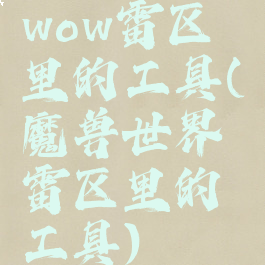 wow雷区
里的工具(
魔兽世界
雷区里的
工具)